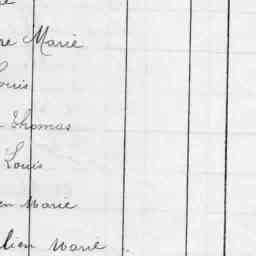 re Marie
ouis
Thomas
Louis
en Marie
lien Marie